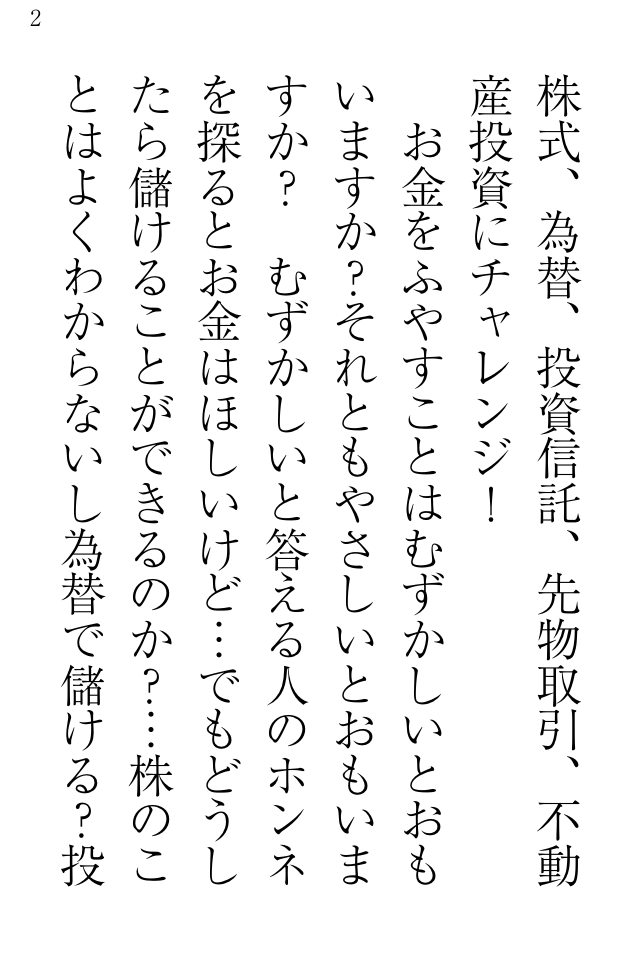 2
株式、為替、投資信託、先物取引、不動
産投資にチャレンジ！
　お金をふやすことはむずかしいとおも
いますか？それともやさしいとおもいま
すか？　むずかしいと答える人のホンネ
を探るとお金はほしいけど…でもどうし
たら儲けることができるのか？……株のこ
とはよくわからないし為替で儲ける？投